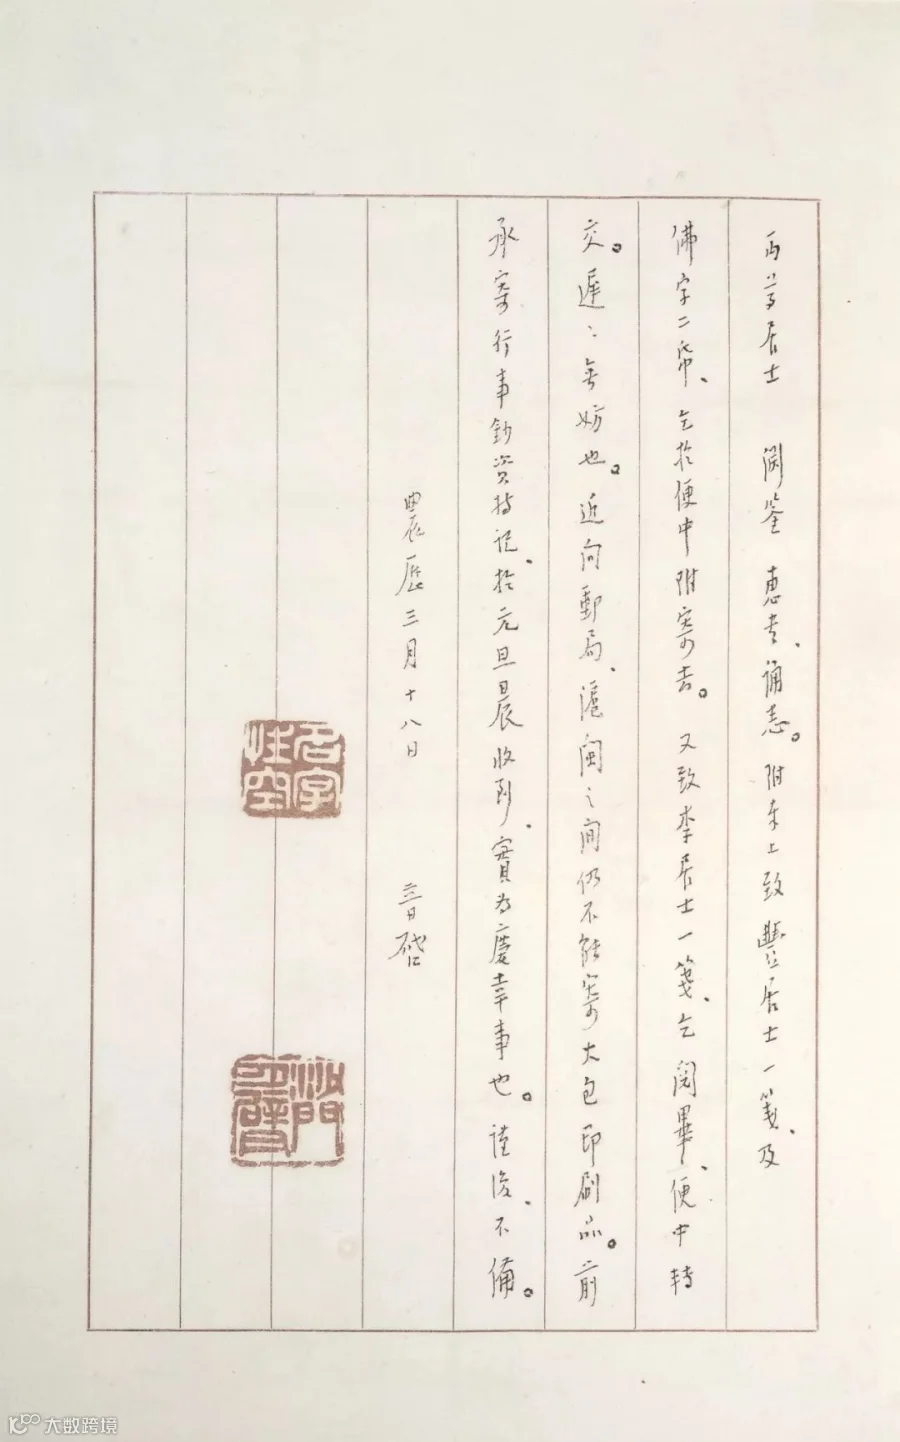 丏尊居士 淵鑒 惠書、誦悉。附奉上致豐居士一箋、及
佛字二帋、乞於便中附寄去。又致李居士一箋、乞閱畢、便中轉
交。遲遲無妨也。近向郵局、滬閩之間仍不能寄大包印刷品。前
承寄行事鈔資持記、於元旦晨收到、實為慶幸事也。謹復、不備。
農曆三月十八日 音啓
名字性空
沙門
大数跨境